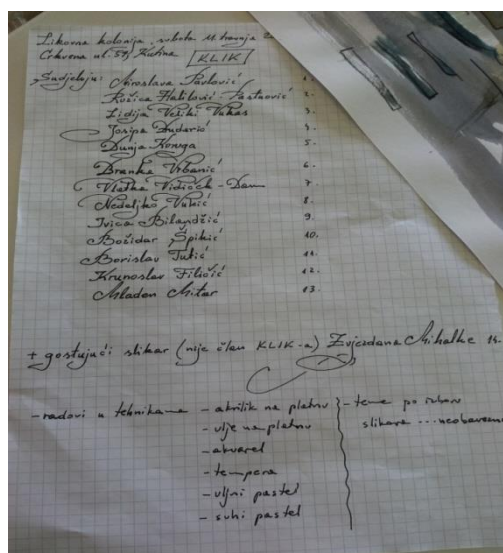 Likovna kolonija, subota 11. travnja
Crkvena ul. 57, Kutina KLIK
Sudjeluju: Miroslava Pavlović 1.
Rožica Halilović-Pastuović 2.
Lidija Veliki Vukas 3.
Josipa Dudarić 4.
Dunja Koruga 5.
Branka Vrbanić 6.
Vlatka Vidiček-Dam 7.
Nedeljko Vukić 8.
Ivica Bilandžić 9.
Božidar Špikić 10.
Borislav Tutić 11.
Krunoslav Filičić 12.
Mladen Mitar 13.
+ gostujući slikar (nije član KLIK-a) Zvjezdana Mihalke 14.
- radovi u tehnikama - akrilik na platnu - teme po izboru
- ulje na platnu slikara ... neobavezno
- akvarel
- tempera
- uljni pastel
- suhi pastel